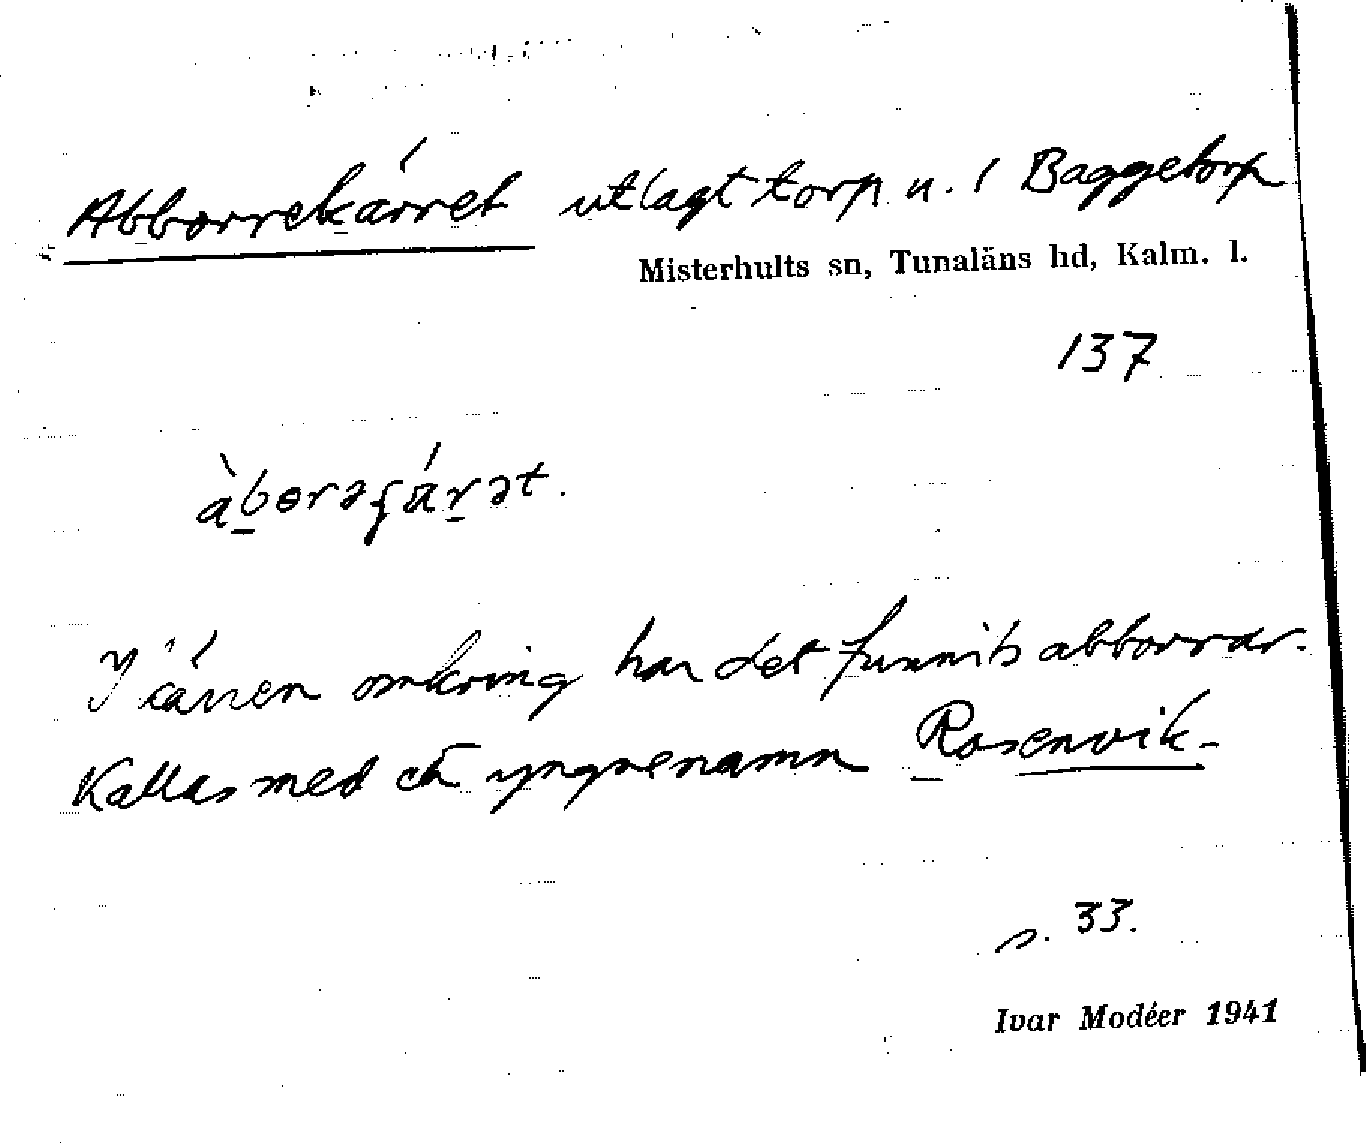 Abborrekärret utlagt torp u. / Baggetorp
Misterhults sn, Tunaläns hd, Kalm. l.
137
I kärren omkring har det funnits abborrar.
Kallas med ett yngre namn Rosenvik.
s. 33.
Ivar Modéer 1941